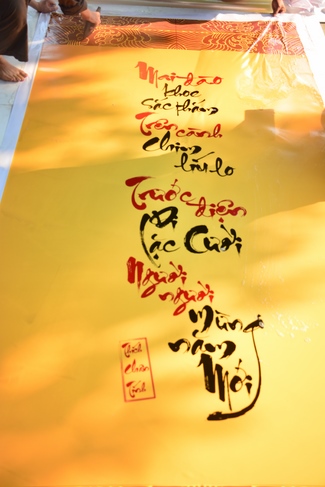 Mai đào
khoe
sắc thắm
Trên cành
chim
líu lo
Trước điện
Di
Lặc Cười
Người
người
mừng
năm
Mới
Thích
Chân
Tính